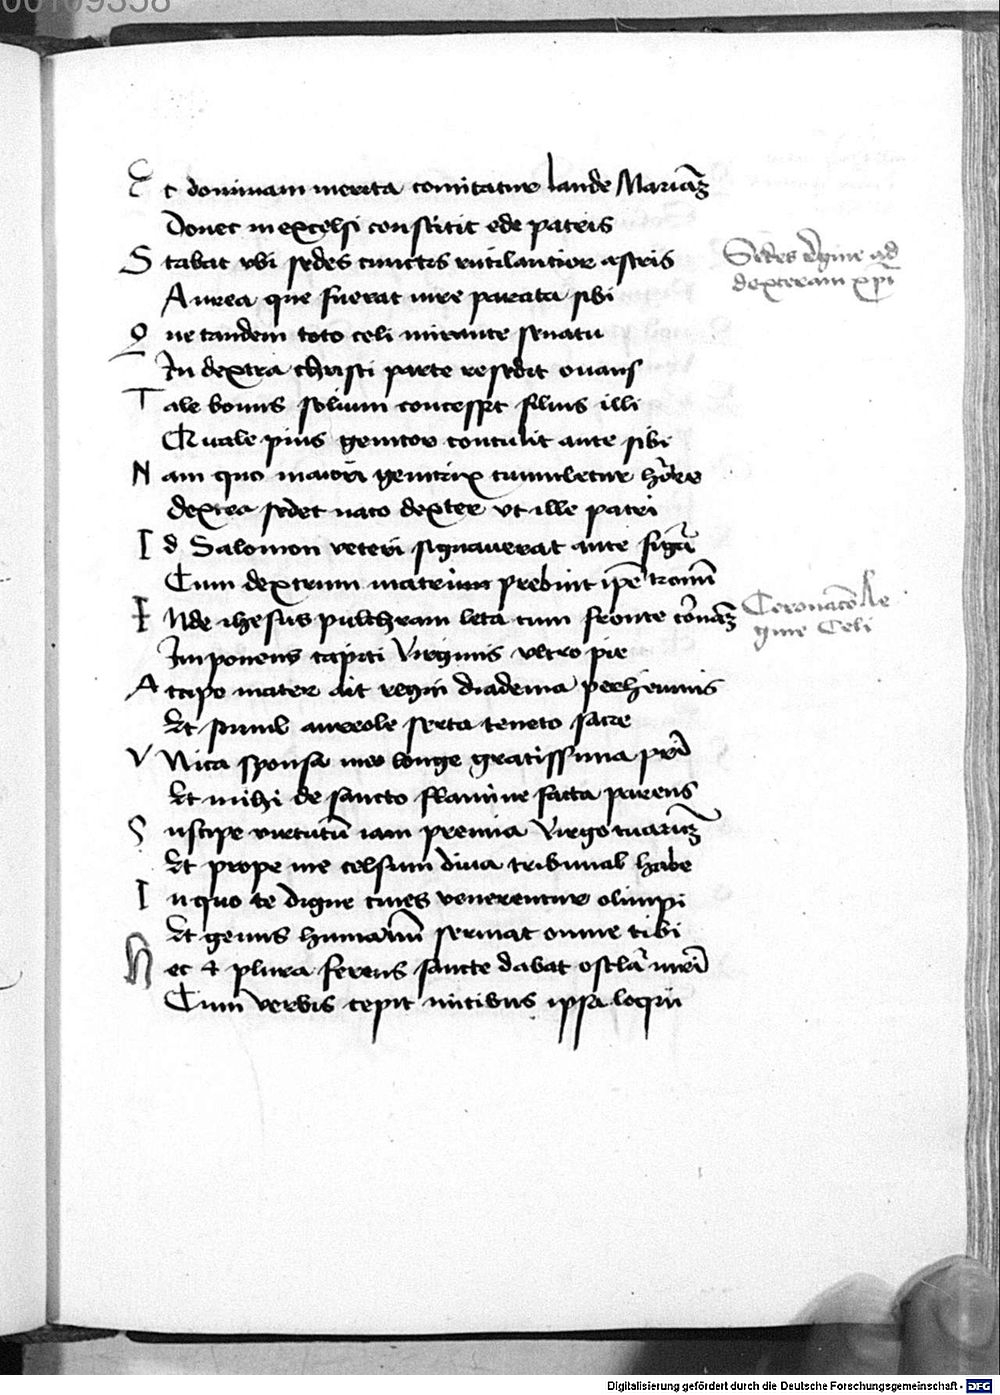 00109358
Et dominam merita comitatur laude Mariaʒ
Donec in excelsi constitit ede patris
Stabat vbi sedes cunctis rutilantior astris
Aurea que fuerat iure parata sibi
Que tandem toto celi mirante senatu
In dextra christi parte resedit ouans
Tale bonus solium concessit filius illi
Quale pius genitor contulit ante sibi
Nam quo maiori genitrix cumuletur hõore
dextra sedet nato dexter vt ille patri
Id Salomon veteri signauerat ante figũra
Cum dextrum matri prebuit ip̃e tronũ
INde ihesus pulchram leta cum fronte corõnaʒ
Imponens capiti Virginis vltro pie
Accipe mater ait regni diadema perhennis
Et simul aureole serta teneto sacre
VNica sponsa meo longe gratissima pr̃i
Et mihi de sancto flamine facta parens
Suscipe virtutũ iam premia Virgo tuarũʒ
Et prope me celsum diua tribunal habe
In quo te digne ciues venerentur olimpi
Et genus humanũ seruiat omne tibi
Hec & plura ferens sancte dabat oscla mr̃i
Cum verbis cepit mitibus ipsa loqui
Sedes regine ad
dexteram xp̃i
Coronacõ Re
gine Celi
Digitalisierung gefördert durch die Deutsche Forschungsgemeinschaft - DFG